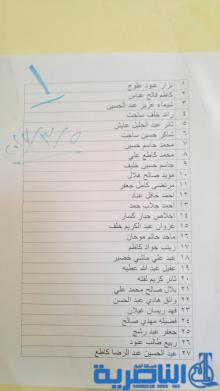 ١
نزار عبود علوج ١
كاظم فالح عباس ٢
شيماء عزيز عبد الحسين ٣
رائد خلف ساجت ٤
ثائر عبد الجليل عايش ٥
شاكر حسين ساجت ٦
محمد جاسم حسين ٧
محمد كاظم علي ٨
جاسم حسين خليف ٩
مؤيد صالح هلال ١٠
مرتضى كامل جعفر ١١
احمد خافل عناد ١٢
احمد جلاب حمد ١٣
اخلاص جبار كسار ١٤
غزوان عبد الكريم خلف ١٥
ماجد خاتم موحان ١٦
زينب جواد كاظم ١٧
عبد علي ماشي خضير ١٨
عقيل عبد الله عطيه ١٩
ثائر كريم لفته ٢٠
بلال صالح محمد علي ٢١
واثق هادي عبد الحسن ٢٢
فهد ريسان غيلان ٢٣
فضيله مهدي صالح ٢٤
جعفر عبد رشج ٢٥
ربيع طالب عبود ٢٦
عبد الحسين عبد الرضا كاطع ٢٧
الناصرية